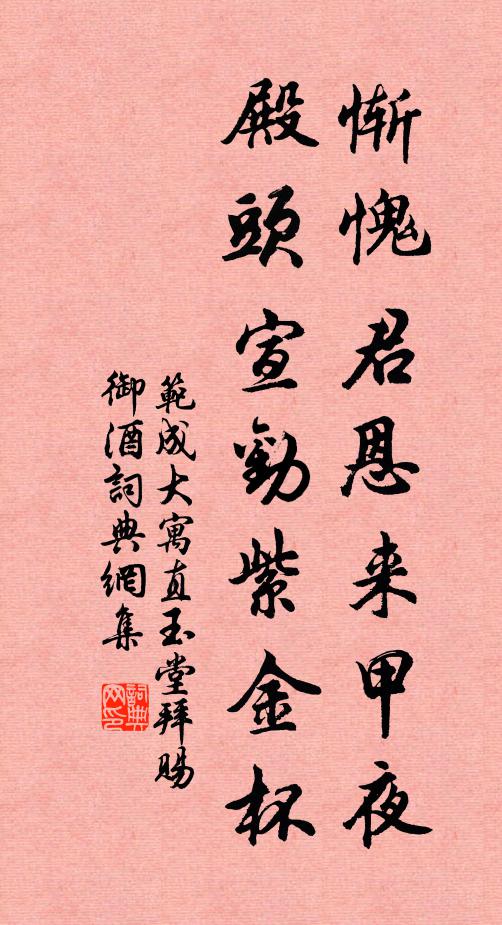 慚愧君恩来甲夜
殿頭宣勸紫金杯
範成大寓直玉堂拜賜
御酒詞典網集
詞典网印